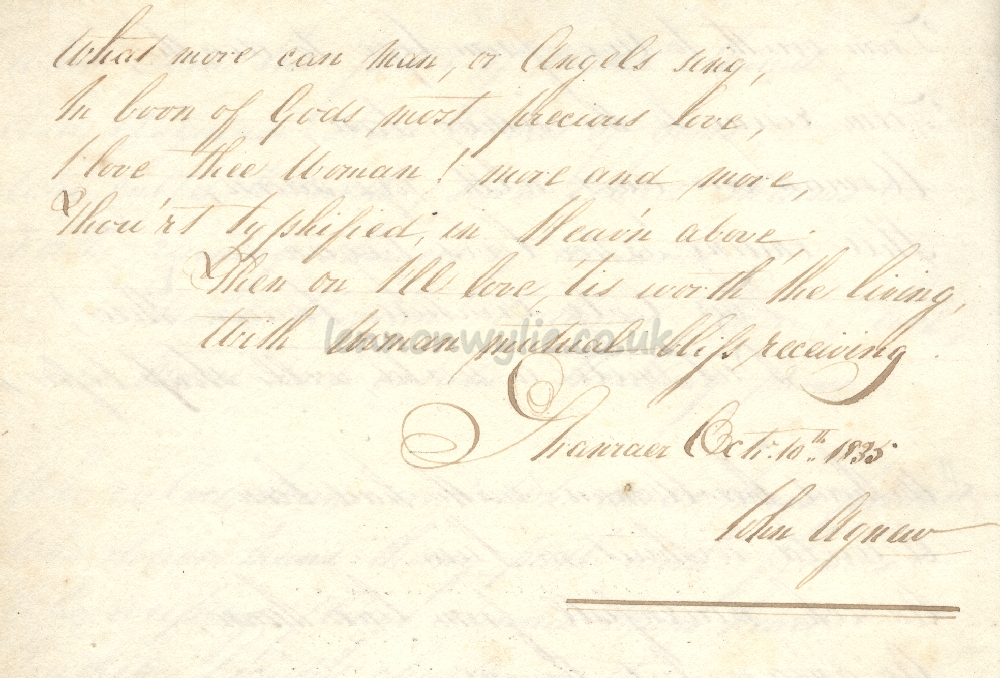 What more can Man, or Angels sing,
In boon of Gods most precious love,
I love thee Woman! more and more,
Thou'rt typhified, in Heav'n above;
Then on I'll love, tis worth the living,
With Woman mutual bliss receiving
Octr. 10th. 1835
John Agnew
lennonwylie.co.uk